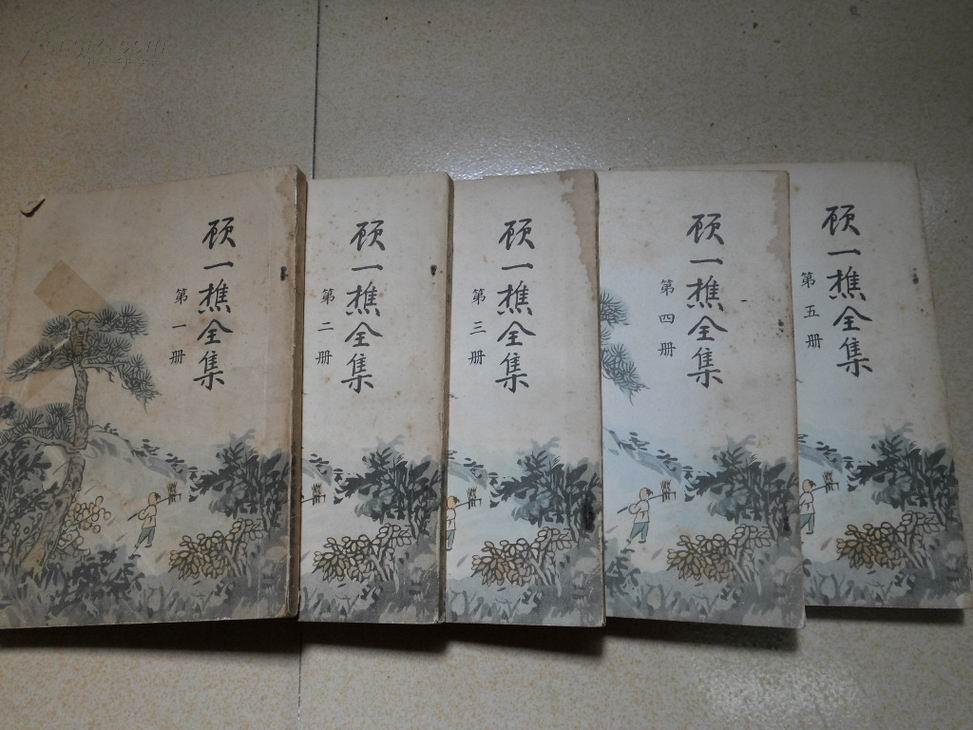 顾一樵全集
第一册
顾一樵全集
第二册
顾一樵全集
第三册
顾一樵全集
第四册
顾一樵全集
第五册